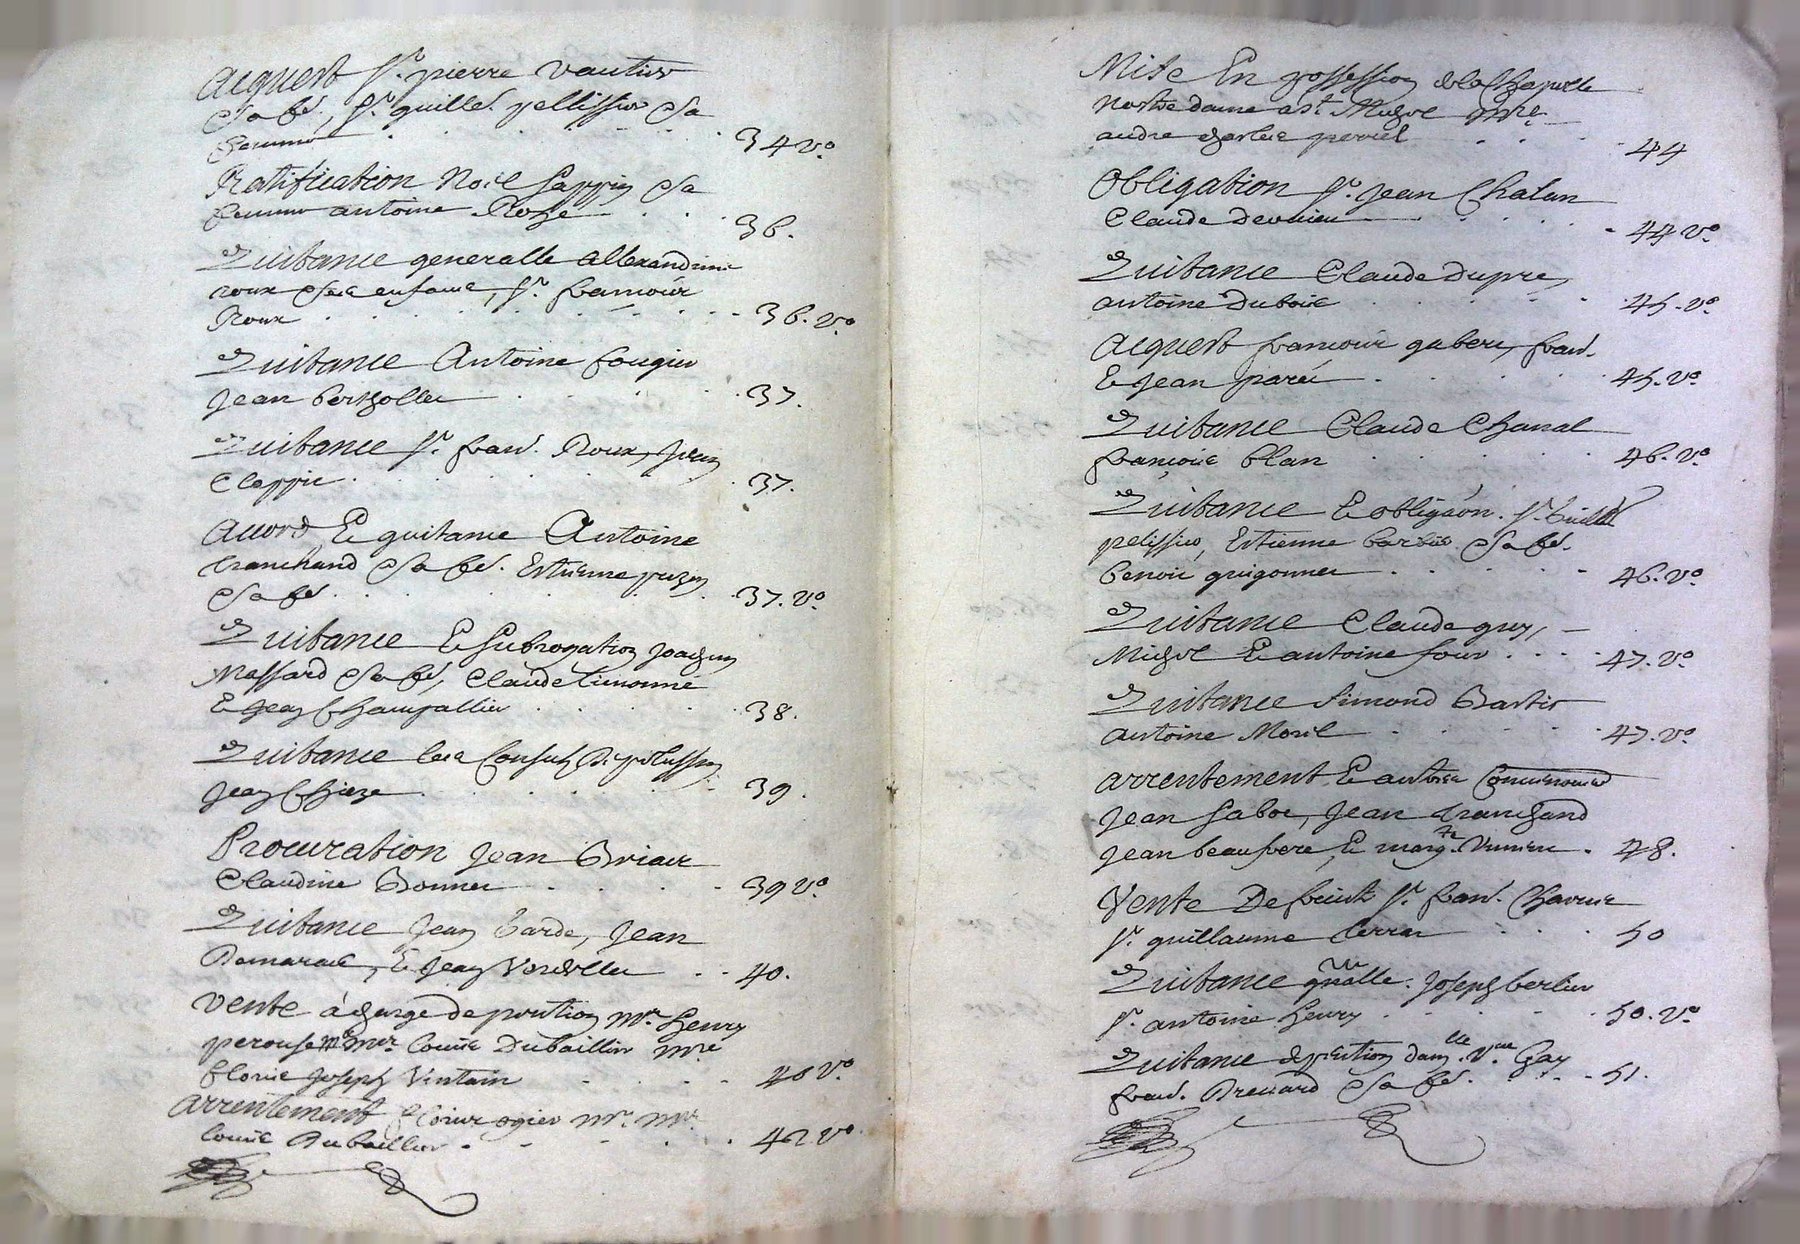 Acquest Sr. pierre vautier
Sa fe., Sr. guille. pellissier Sa
femme 34 vo.
Ratification Noel Sappin Sa
femme antoine Roze 36.
Quitance generalle allexandrine
roux Ses enfans, Sr. francois
Roux 36. vo.
Quitance Antoine fougier
Jean bertholler 37.
Quitance Sr. fran. Roux, Jean
Clappie 37.
Accord & quitance Antoine
tranchand Sa fe. Estienne
Sa fe. 37. vo.
Quitance & Subrogation Joachin
Massard Sa fe, Claude
& Jean Champallier 38.
Quitance les Consuls
Jean Chieze 39.
Procuration Jean Briancs
Claudine Bonner 39 vo.
Quitance Jean barde, Jean
& Jean 40.
Vente à charge de pention Mr. henry
perouse & Mr. Louis Dubaillier Mre
Joseph Ventain 40 vo.
Arrentement ogier Mr. Mre
Louis Dubaillier 42 vo.
Mise En possession de la Chapelle
nostre dame & st. Michel Mre.
andre charles perriet 44
Obligation Sr. Jean Chalan
Claude 44 vo.
Quitance Claude Dupre,
antoine Dubois 45. vo.
Acquest francois gubert, fran.
& Jean 45. vo.
Quitance Claude Chanal
françois blan 46. vo.
Quitance & obligaon. Sr. Guille
pelissier, Estienne barbier Sa fe.
benoit guigonner 46. vo.
Quitance Claude guy,
Michel & antoine four 47. vo.
Quitance Simond Bartier
antoine Morel 47. vo.
Arrentement & autres Conventions
Jean Saboc, Jean tranchand
Jean beaufrere, & marg.te 48.
Vente De fruits Sr. fran.
Sr. guillaume terrar 50
Quitance gnalle. Joseph berlier
Sr. antoine henry 50. vo.
Quitance & pention dam.lle Gay
fran. Brenard Sa fe. 51.